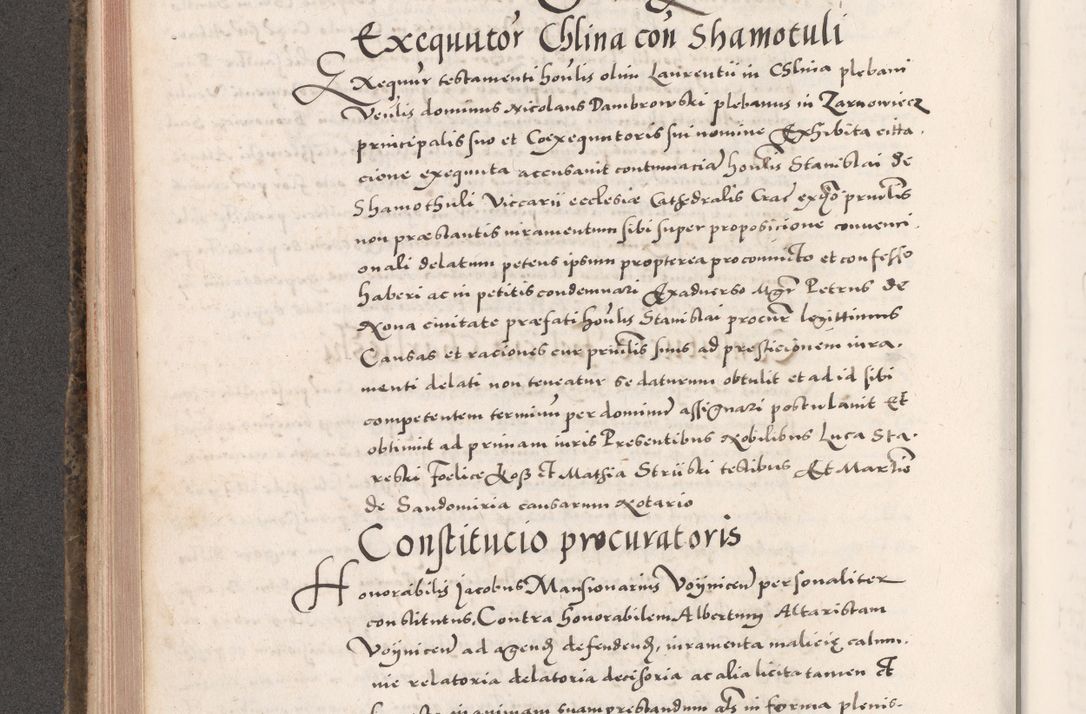 Exequutor Chlina con Shamotuli
Exequutr testamenti honlis olim Laurentii in Chlina plebani
Venlis dominus Nicolaus Dambrowski plebanus in Zarnowiecz
principalis suo et Coexequutoris sui nomine Exhibita citta-
cione exequuta accusavit contumaciam honlis Stanislai de
Shamothuli Viccarii ecclesiæ Cathedralis Crac ex quo prntis
non præstantis iuramentum sibi super proposicione convenci-
onali delatum petens ipsum propterea pro convicto et confesso
haberi ac in petitis condemnari Ex adverso Mgr Petrus de
Xona civitate præfati honlis Stanislai procur legittimus
Causas et raciones cur prinlis suus ad presticionem iura-
menti delati non teneatur se daturum obtulit et ad id sibi
competentem terminum per dominum assignari postulavit Et
obtinuit ad primam iuris Presentibus Nobilibus Luca Sta-
reski Foelice Koss et Mathia Striiski testibus Et Martino
de Sandomiria causarum Notario
Constitucio procuratoris
Honorabilis Jacobus Mansionarius Voynicen personaliter
constitutus, Contra honorabilem Albertum Altaristam
Voynicen ad agend defendend, iuramenta malicię calum-
nie relatoria delatoria decisoria ac alia licita tamen et
in animam suam prestandum als in forma plenis-